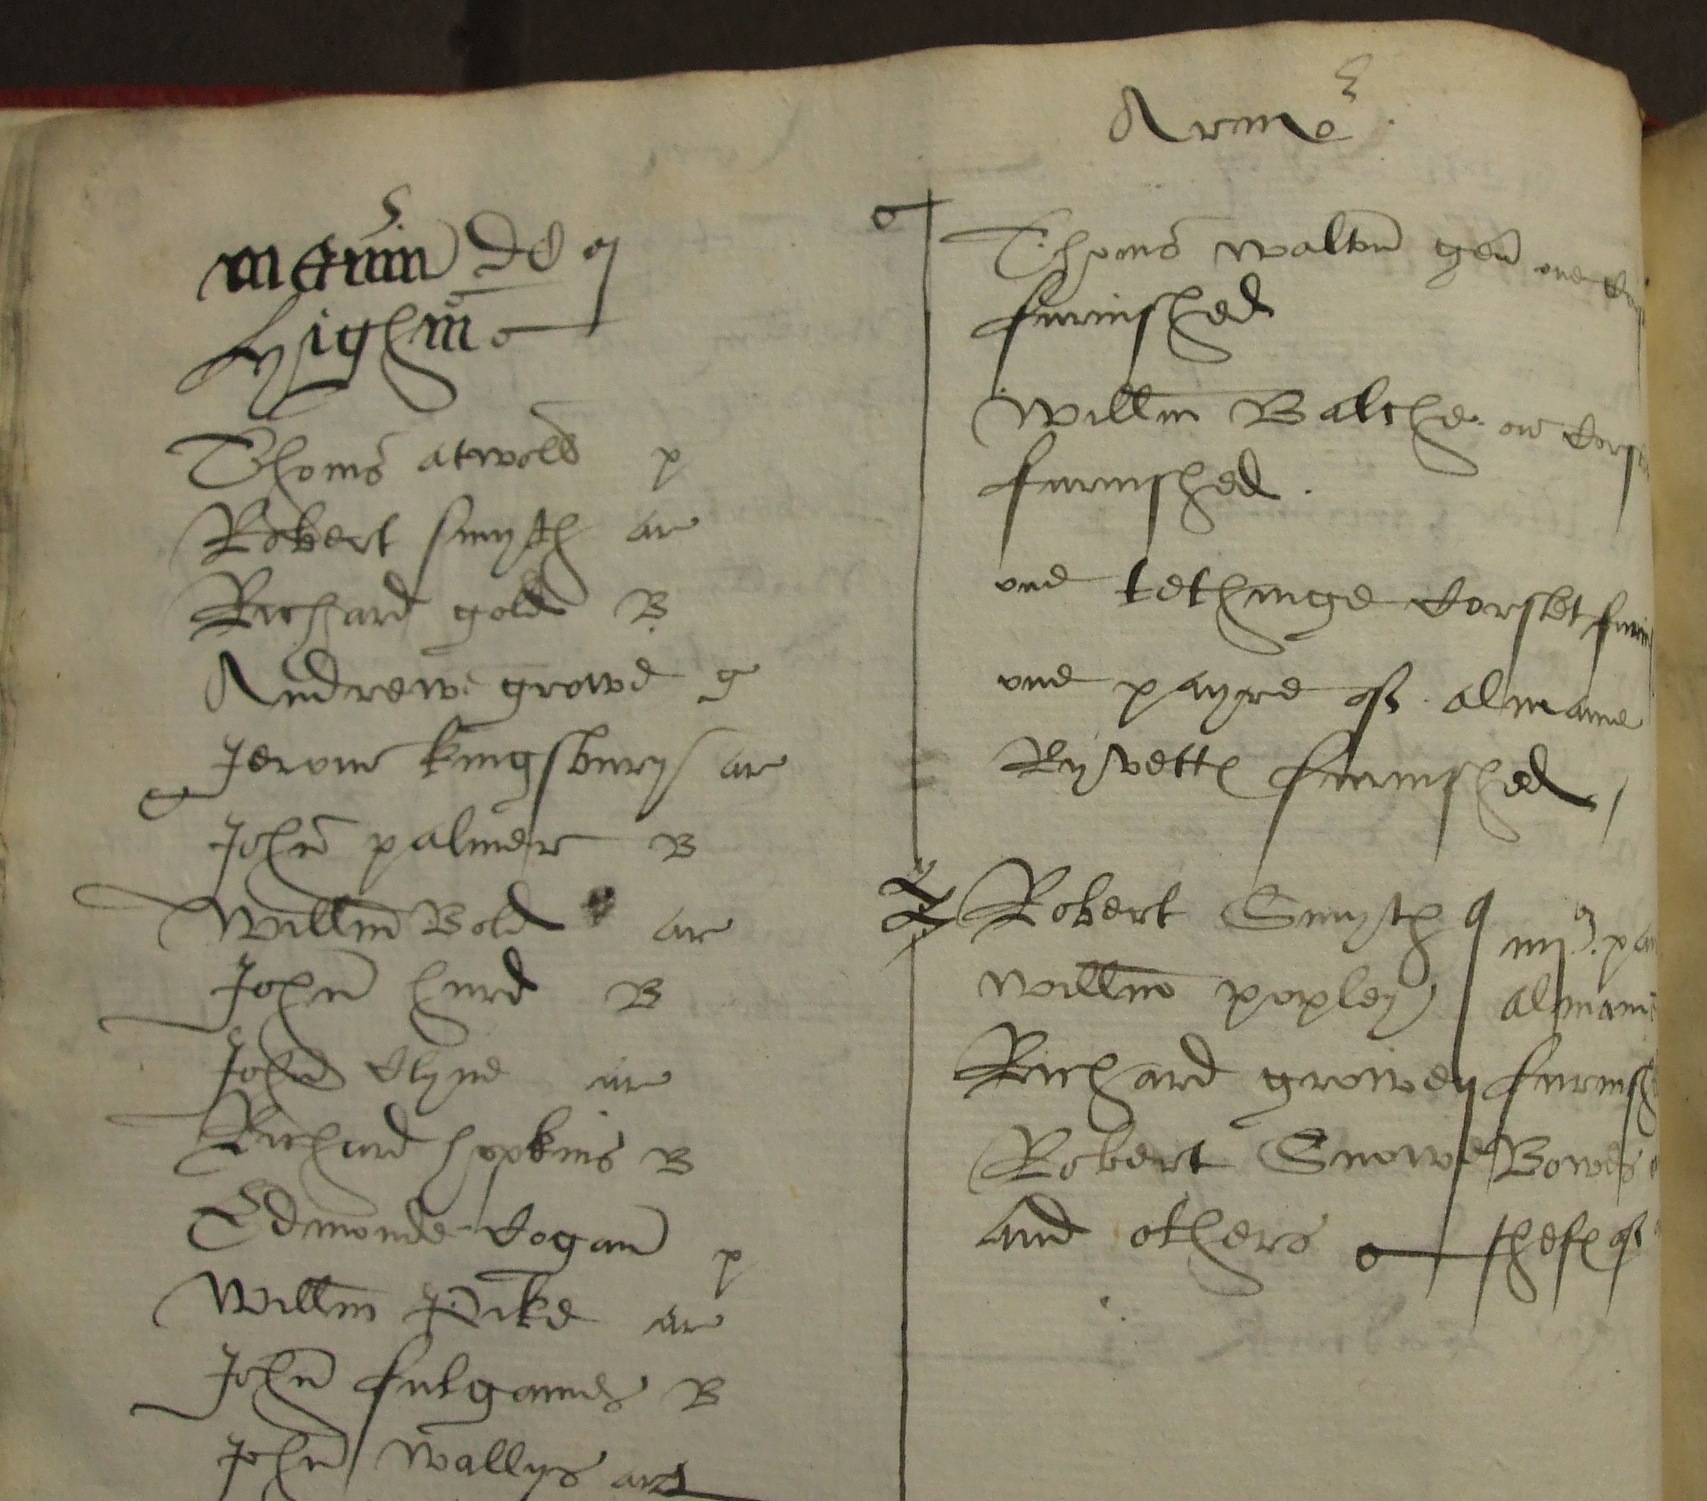 Armor
Thoms atwold p
Robert Smyth ar
Richard gold B
Andrewe growe g
Jerom kingsbury ar
John palmer B
Willm Bold ar
John hurd B
John Clyne ar
Richard hopkins B
Edmonde Cogan p
Willm Pike ar
John fulgames B
John Wallys ar
Thoms Walton gen one
furnished
Willm Balche on Cors
furnished.
one tethinge Corslet furni
one payre of almaine
Ryvett furnished
Robert Smyth
Willm popley
Richard growe
Robert Snowe
and others
iiij pa
almain
furnish
Bowes
shef of